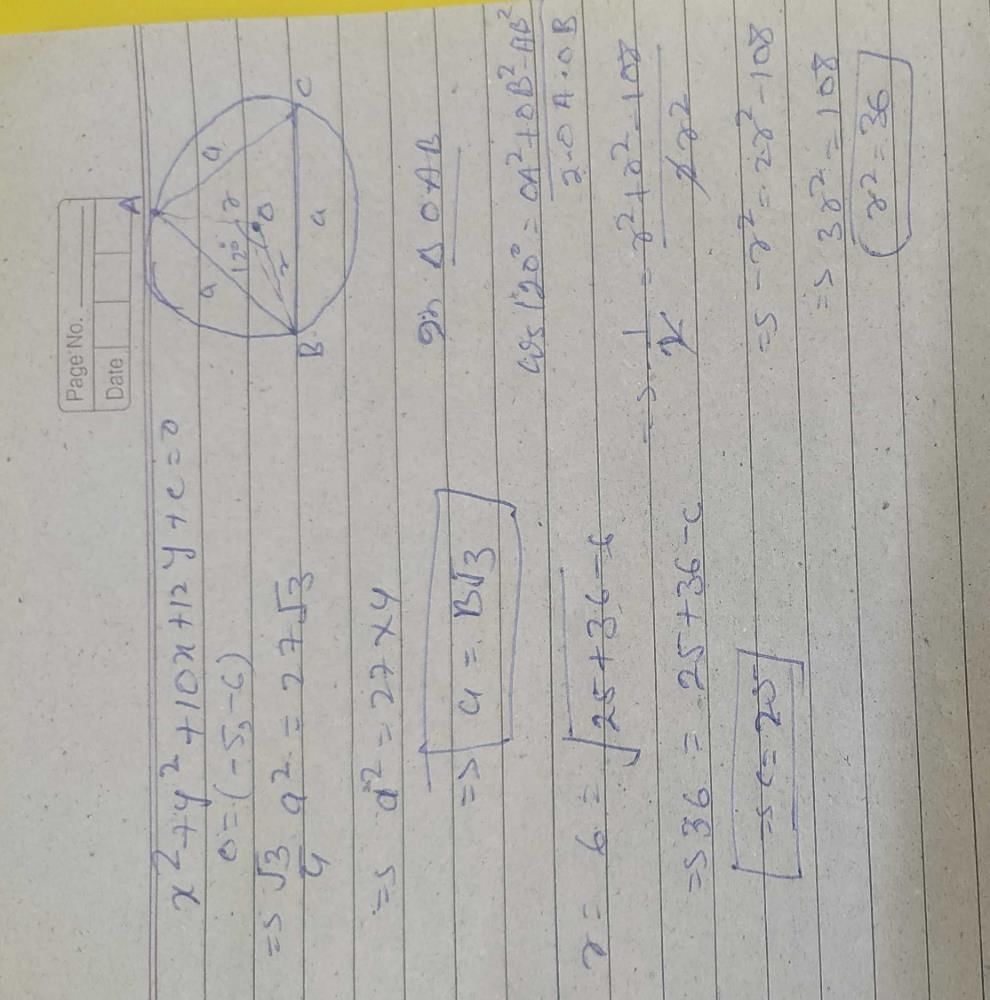 Page No.
Date
x² + y² + 10x + 12y + c = 0
O = (-5, -6)
=> √3/4 a² = 27√3
=> a² = 27 × 4
=> a = B√3
r = 6 = √25+36-c
=> 36 = 25+36-c
=> c = 25
A
a
a
120°
r
r
O
B
a
C
In Δ OAB
cos 120° = OA² + OB² - AB² / 2·OA·OB
=> -1/2 = r² + r² - 108 / 2r²
=> -r² = 2r² - 108
=> 3r² = 108
r² = 36